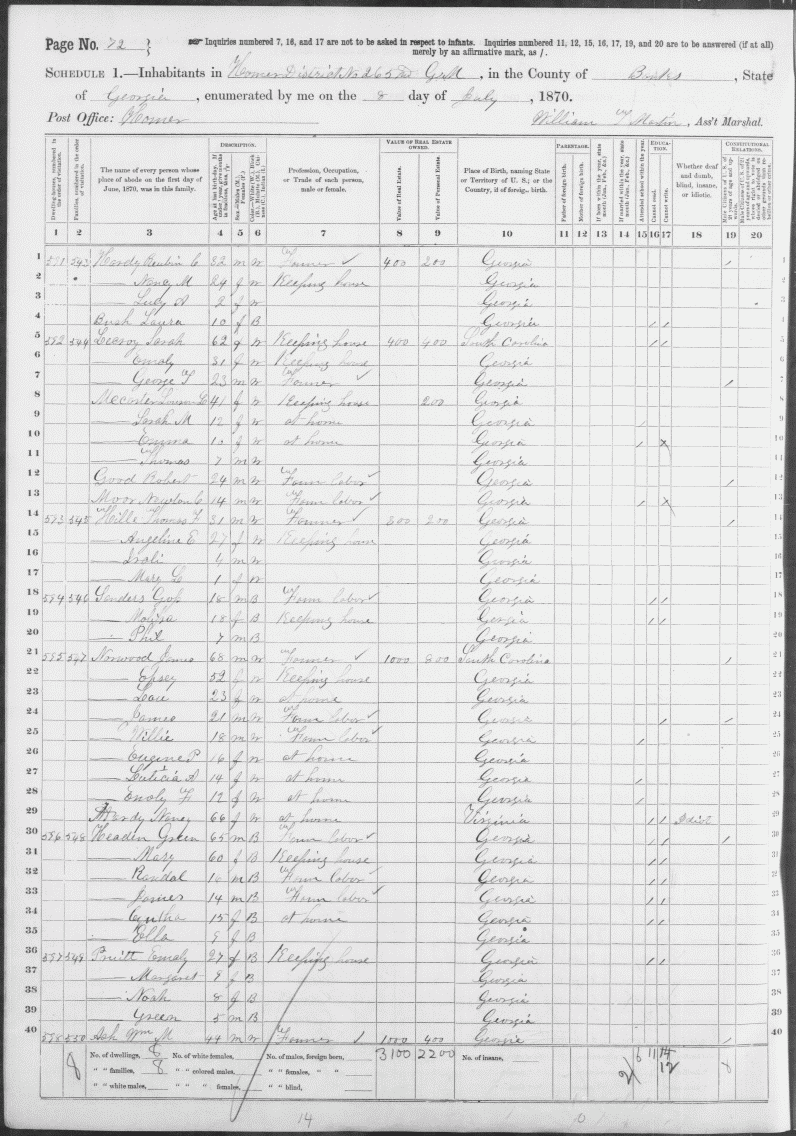 Page No. 72
Inquiries numbered 7, 16, and 17 are not to be asked in respect to infants. Inquiries numbered 11, 12, 15, 16, 17, 19, and 20 are to be answered (if at all) merely by an affirmative mark, as /.
SCHEDULE 1.—Inhabitants in Homer District No 265th G M, in the County of Banks, State
of Georgia, enumerated by me on the 8 day of July, 1870.
Post Office: Homer William T Martin, Ass't Marshal.
DESCRIPTION. VALUE OF REAL ESTATE OWNED. PARENTAGE. EDUCATION. CONSTITUTIONAL RELATIONS.
The name of every person whose place of abode on the first day of June, 1870, was in this family.
Profession, Occupation, or Trade of each person, male or female.
Value of Real Estate. Value of Personal Estate.
Place of Birth, naming State or Territory of U. S.; or the Country, if of foreign birth.
Father of foreign birth. Mother of foreign birth.
Attended school within the year. Cannot read. Cannot write.
Whether deaf and dumb, blind, insane, or idiotic.
1 2 3 4 5 6 7 8 9 10 11 12 13 14 15 16 17 18 19 20
1 591 543 Hardy Reubin C 32 m W Farmer 400 200 Georgia
2 — Nancy M 24 f W Keeping house Georgia
3 — Lucy A 2 f W Georgia
4 Bush Laura 10 f B Georgia
5 592 544 Leeroy Sarah 62 f W Keeping house 400 400 South Carolina
6 Emaly 31 f W Keeping house Georgia
7 — George T 23 m W Farmer Georgia
8 41 f W Keeping house 200 Georgia
9 — Sarah M 12 f W at home Georgia
10 — Emma 10 f W at home Georgia
11 — Thomas 7 m W Georgia
12 Good Robert 24 m W Farm labor Georgia
13 Moor Newton C 14 m W Farm labor Georgia
14 593 545 Hills Thomas F 31 m W Farmer 300 200 Georgia
15 — Angeline E 27 f W Keeping house Georgia
16 4 m W Georgia
17 — Mary L 1 f W Georgia
18 594 546 Sanders 18 m B Farm labor Georgia
19 — Malisa 18 f B Keeping house Georgia
20 — Phil 7 m B Georgia
21 595 547 Norwood James 68 m W Farmer 1000 800 South Carolina
22 — Epsey 52 f W Keeping house Georgia
23 — Lou 23 f W at home Georgia
24 — James 21 m W Farm labor Georgia
25 — Willie 18 m W Farm labor Georgia
26 — Eugine P 16 f W at home Georgia
27 — Luticia A 14 f W at home Georgia
28 — Emoly F 12 f W at home Georgia
29 Hardy Nancy 66 f W at home Virginia
30 596 548 Headen Green 65 m B Farm labor Georgia
31 — Mary 60 f B Keeping house Georgia
32 — Randal 16 m B Farm labor Georgia
33 — James 14 m B Farm labor Georgia
34 — Cyntha 15 f B at home Georgia
35 — Ella 9 f B Georgia
36 597 549 Pruitt Emaly 27 f B Keeping house Georgia
37 — Margaret 9 f B Georgia
38 — Noah 8 f B Georgia
39 — Green 5 m B Georgia
40 598 550 Ash Wm M 44 m W Farmer 1000 400 Georgia
8 No. of dwellings, 8 No. of white females, No. of males, foreign born, 3100 2200 No. of insane, 6 11 14 8
" " families, 8 " " colored males, " " females, " " 12
" " white males, " " " females, " " blind,
14